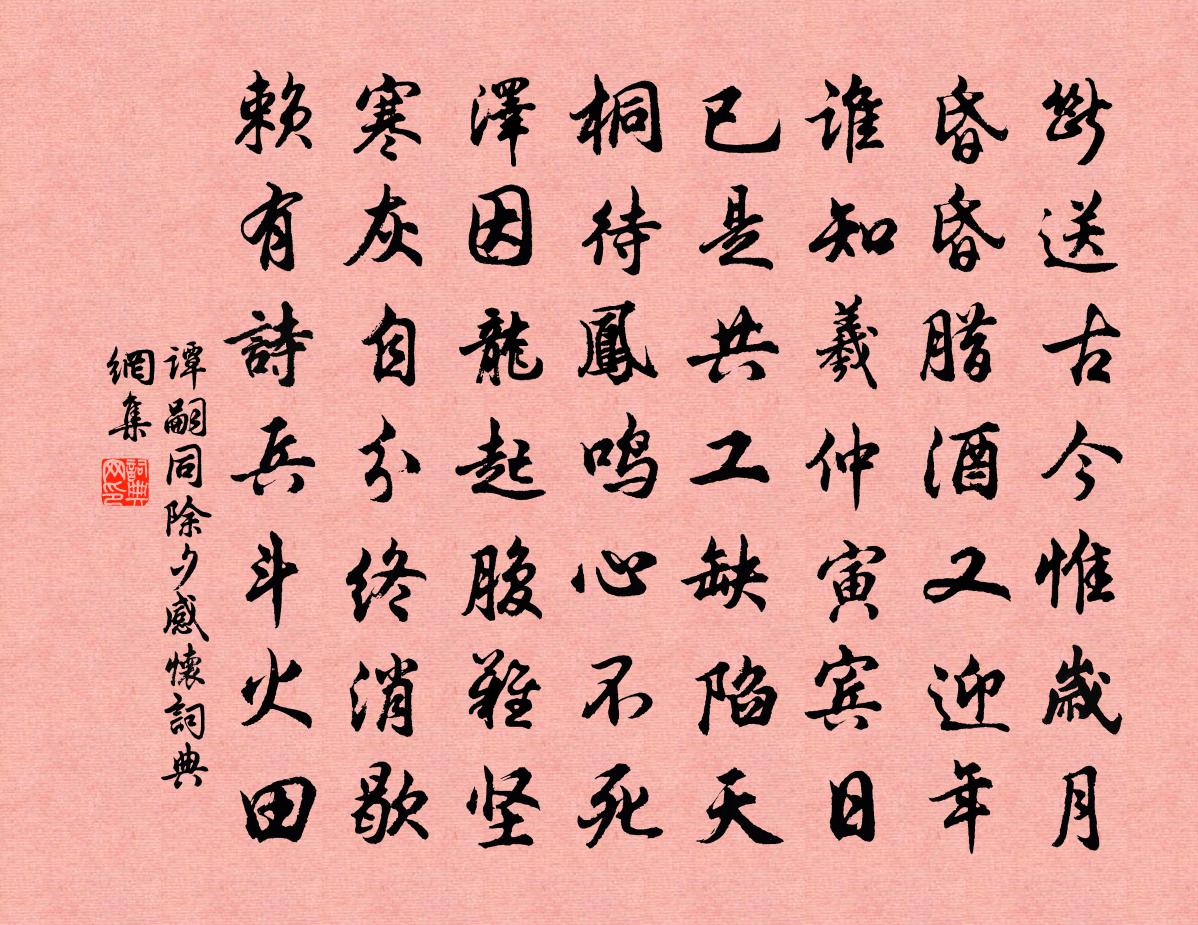 斷送古今惟歲月
昏昏腊酒又迎年
谁知羲仲寅宾日
已是共工缺陷天
桐待鳳鸣心不死
澤因龍起腹難坚
寒灰自分终消歇
赖有詩兵斗火田
谭嗣同除夕感懷詞典
網集
詞典网印